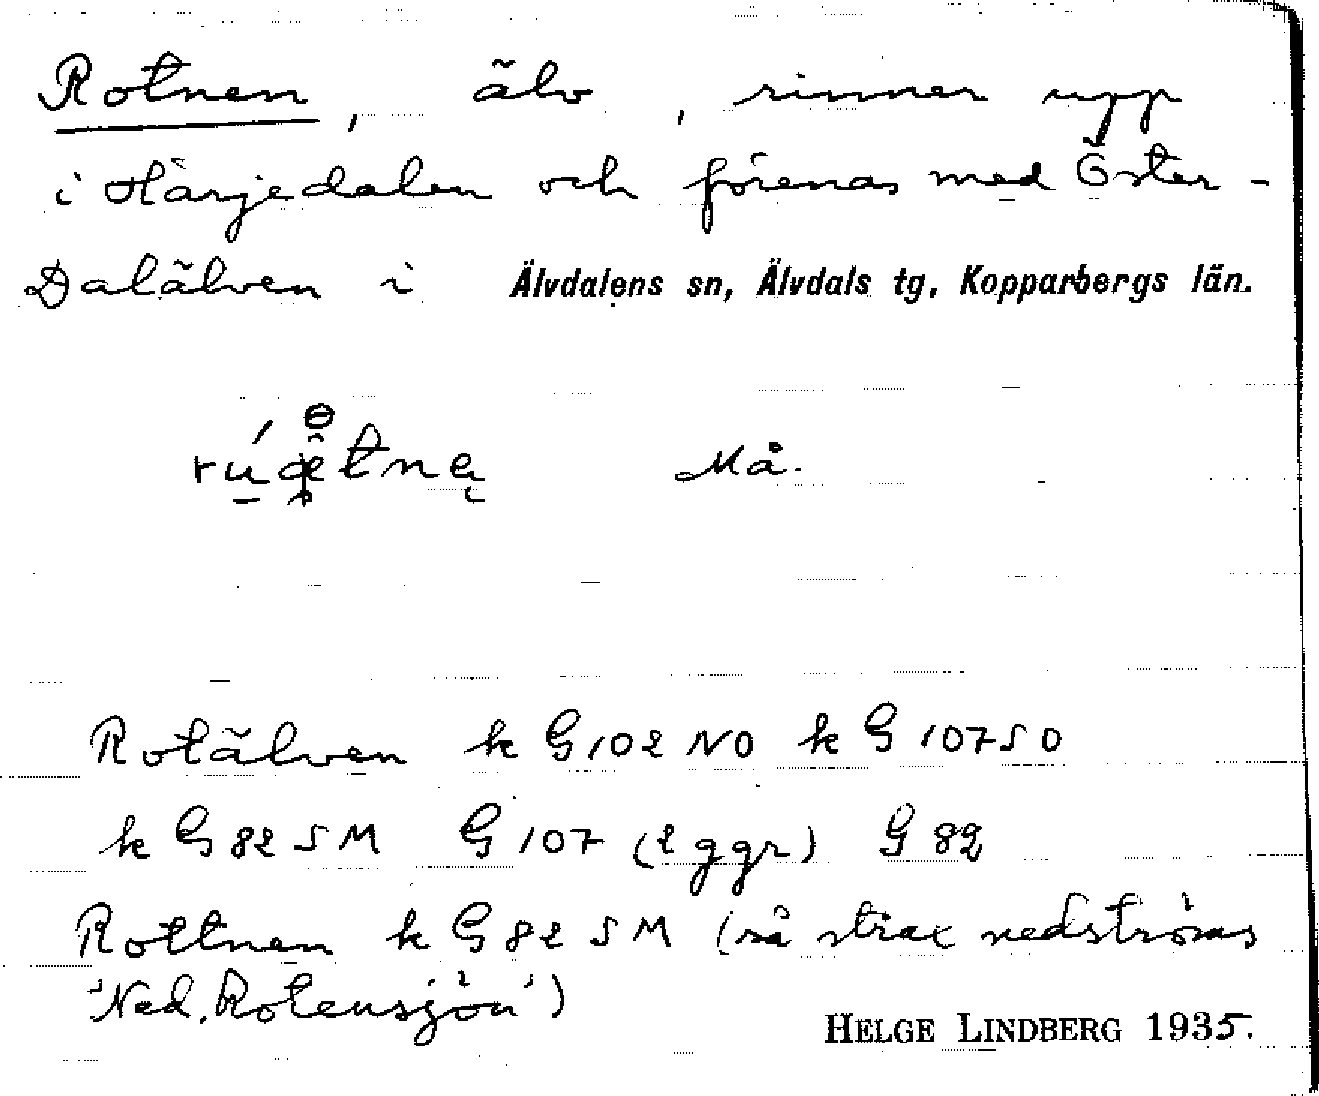 Rotnen, älv, rinner upp
i Härjedalen och förenas med Öster-
Dalälven i Älvdalens sn, Älvdals tg, Kopparbergs län.
Må.
Rotälven k G 102 NO k G 107 SO
k G 82 SM G 107 (2 ggr) G 82
Rottnen k G 82 SM (så strax nedströms
'Ned. Rotensjön')
HELGE LINDBERG 1935.